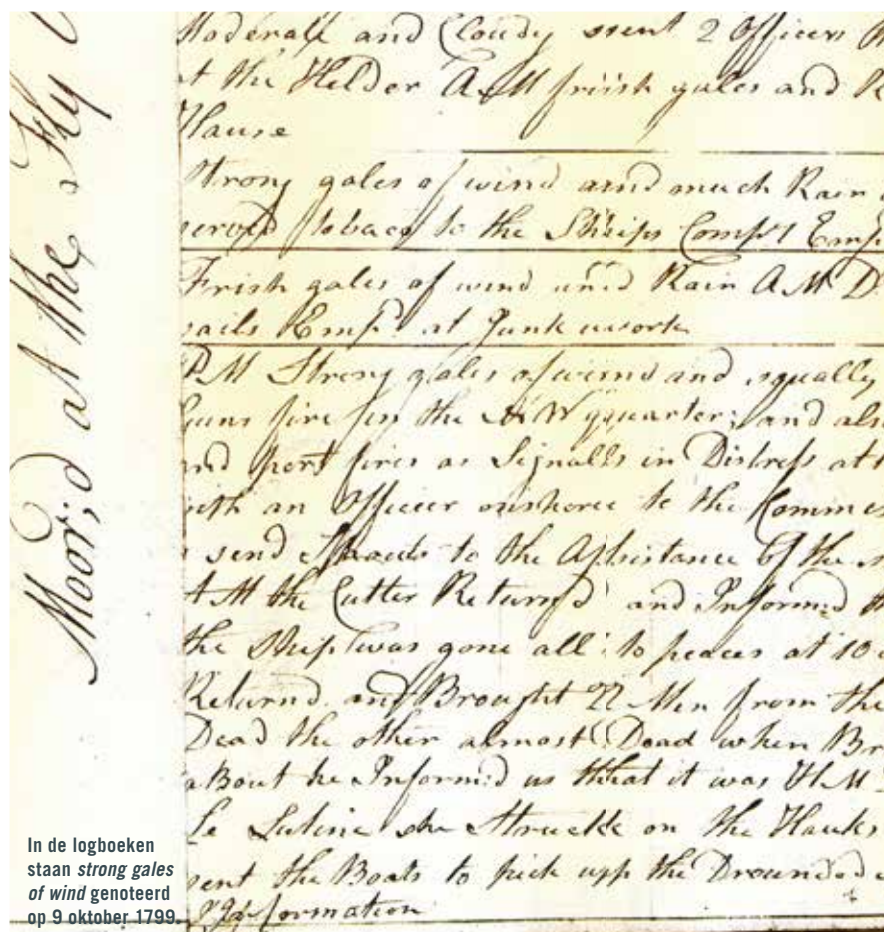 Moor;d at the Fly
Moderate and Cloudy sent 2 Officers
at the Helder A M frish gales and
Hause
Strong gales of wind and much Rain
served tobaco to the Ships Comp
Frish gales of wind and Rain A M D
sails Emp at Junk work
P M Strong gales of wind and squally
Guns fire in the N W quarter; and also
and port fires as Signalls in Distress at
with an Officer onshore to the
send to the Assistance of the
A M the Cutter Return'd and Inform;d
the Ship was gone all to peaces at 10
Returnd and Brought Men from the
Dead the other almost Dead when Br
aBout he Inform;d us that it was H M
Le Lutine she Struck on the Hauks
sent the Boats to pick upp the Drounded
Information
In de logboeken
staan strong gales
of wind genoteerd
op 9 oktober 1799.